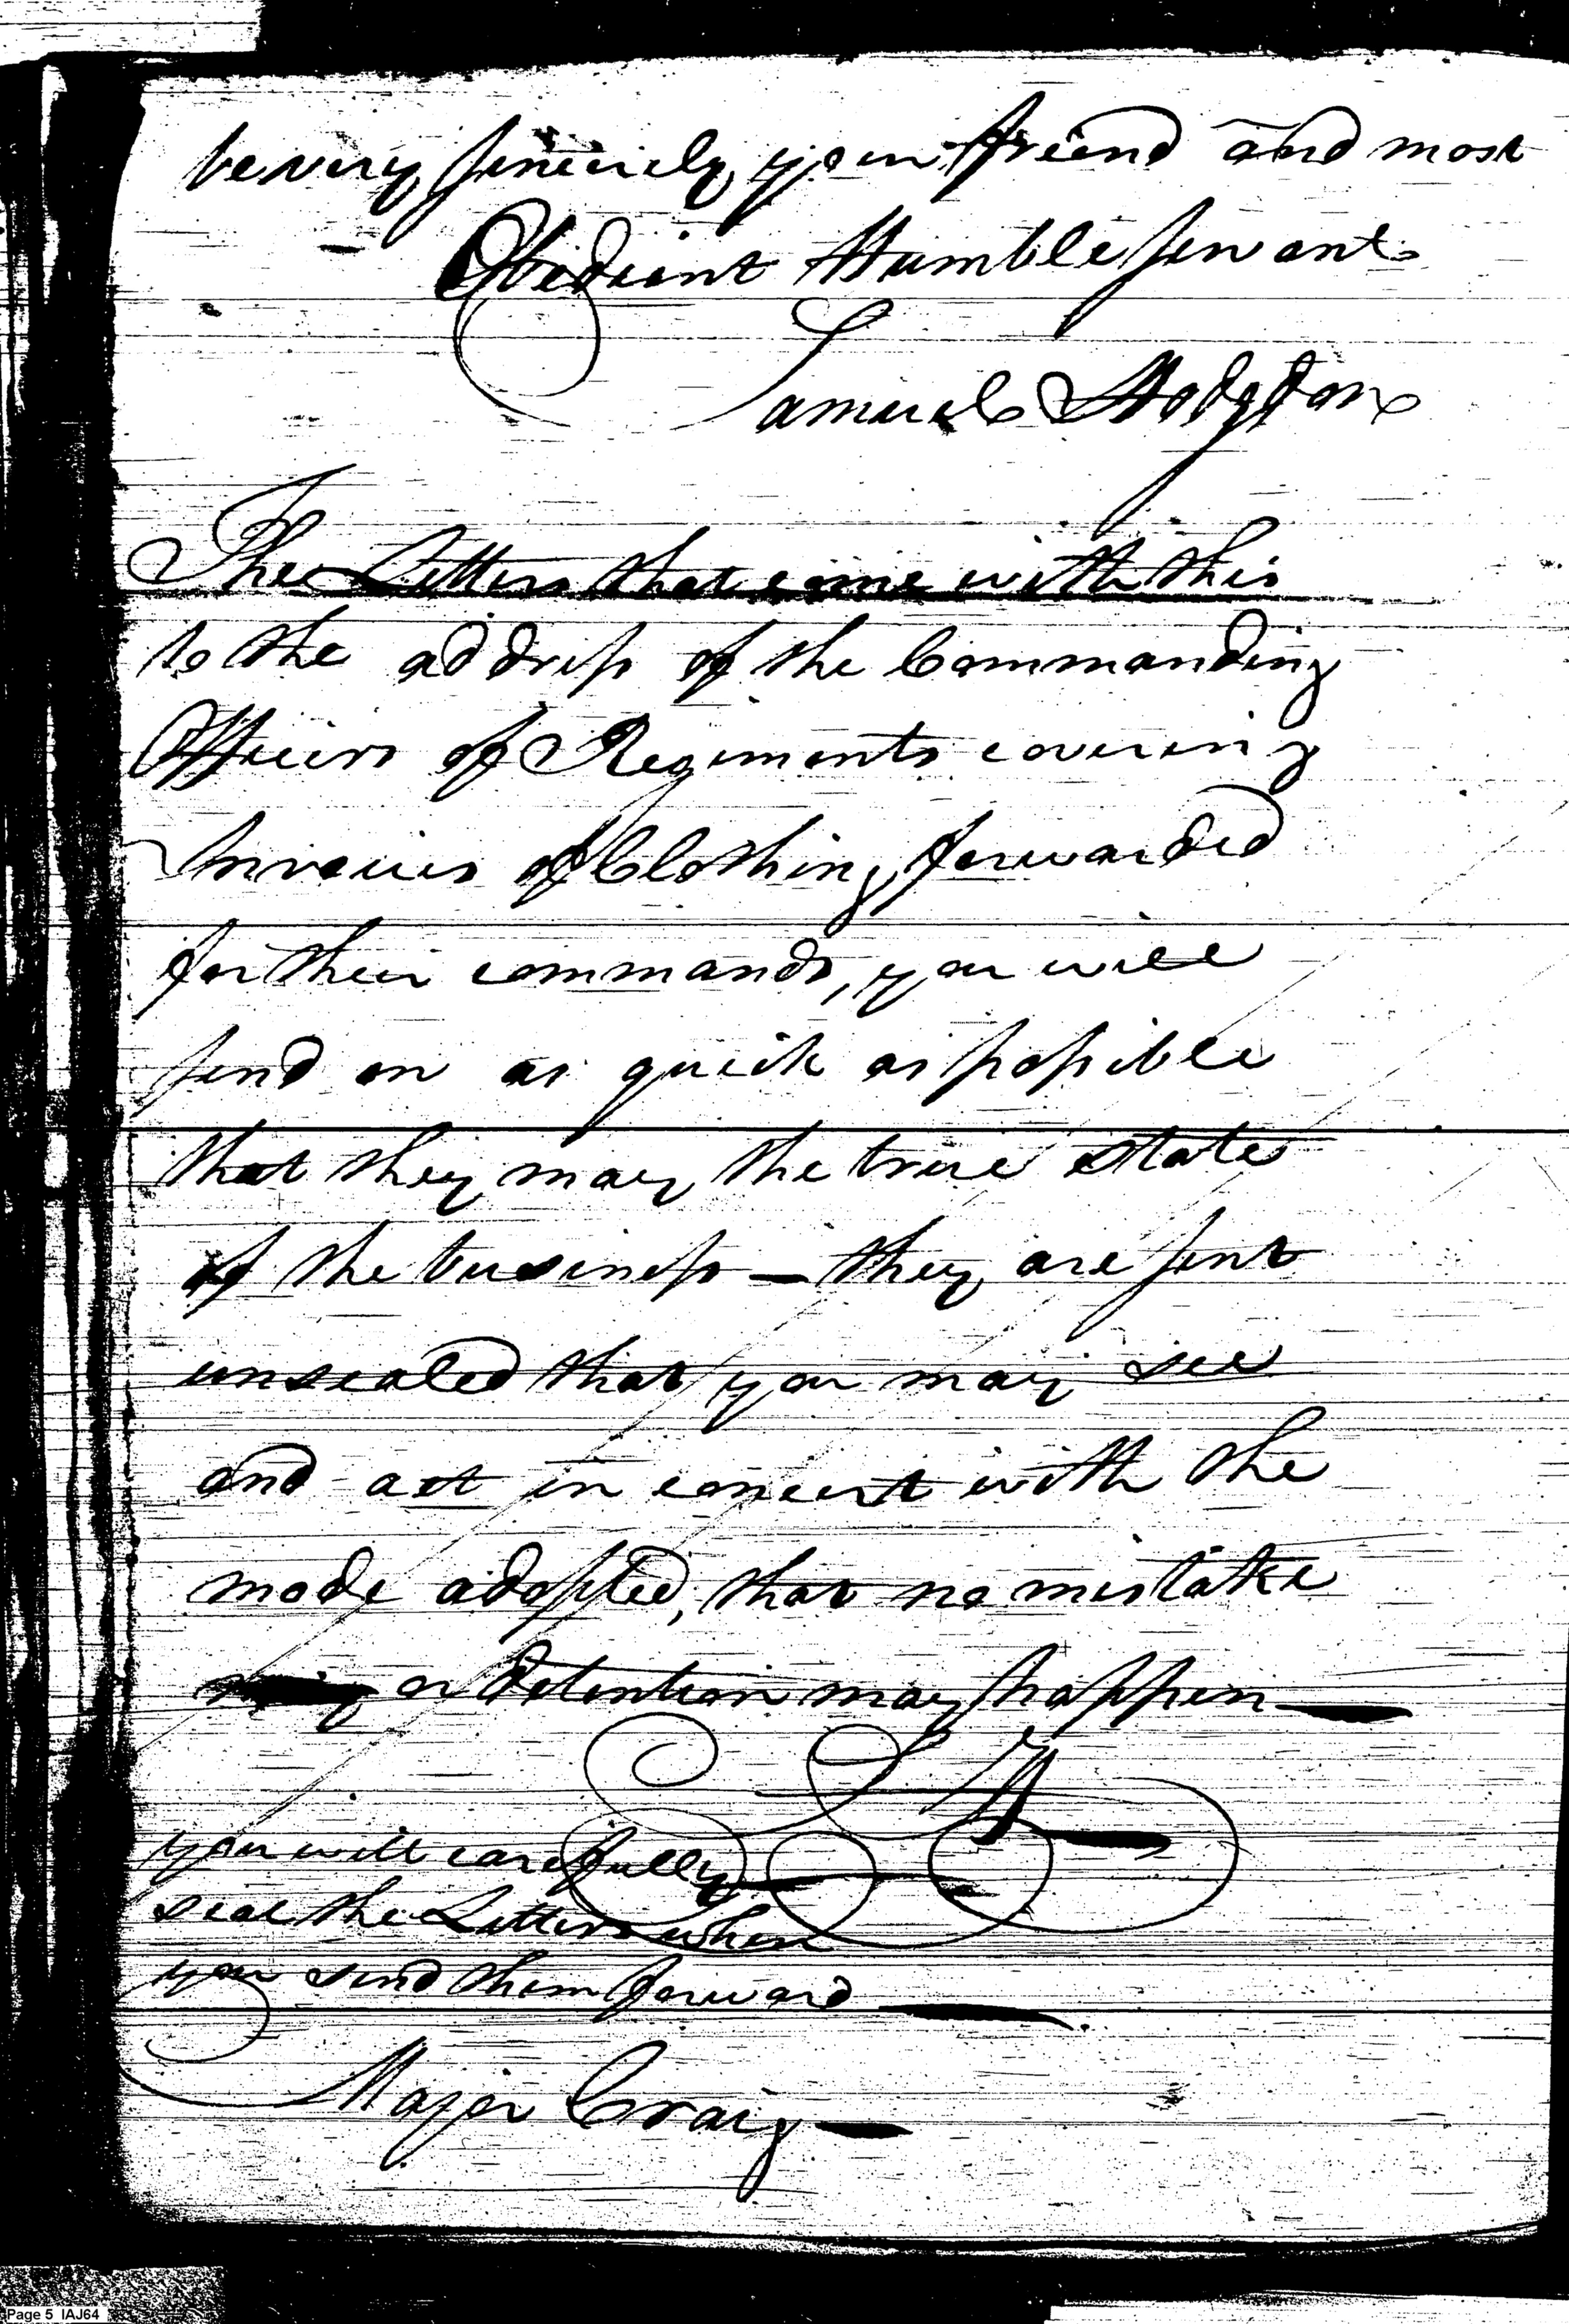 be very sincerely your friend and most
Obedient Humble servant
Samuel Hodgdon
The Letters that come with this
to the address of the Commanding
Officers of Regiments covering
Invoices of Clothing forwarded
for their commands, you will
send on as quick as possible
that they may the true state
of the business — they are sent
unsealed that you may see
and act in concert with the
mode adopted, that no mistake
or detention may happen —
SH
you will carefully
seal the Letters when
you send them forward —
Major Craig —
Page 5 IAJ64